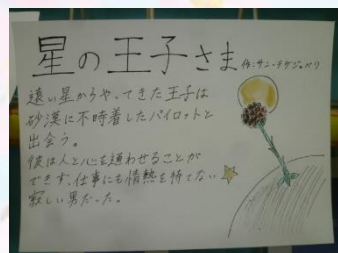 星の王子さま 作:サン・テグジュペリ
遠い星からやってきた王子は
砂漠に不時着したパイロットと
出会う。
彼は人と心を通わせることが
できず、仕事にも情熱を持てない
寂しい男だった。